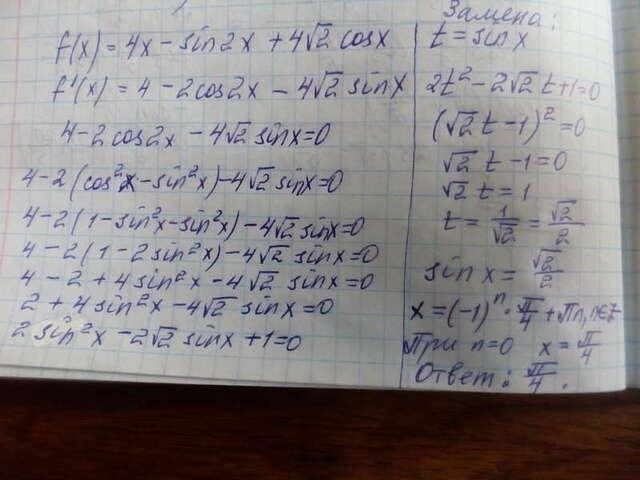 f(x) = 4x - sin2x + 4√2 cosx
f'(x) = 4 - 2cos2x - 4√2 sinx
4 - 2cos2x - 4√2 sinx = 0
4 - 2(cos²x - sin²x) - 4√2 sinx = 0
4 - 2(1 - sin²x - sin²x) - 4√2 sinx = 0
4 - 2(1 - 2sin²x) - 4√2 sinx = 0
4 - 2 + 4sin²x - 4√2 sinx = 0
2 + 4sin²x - 4√2 sinx = 0
2sin²x - 2√2 sinx + 1 = 0
Замена:
t = sin x
2t² - 2√2 t + 1 = 0
(√2 t - 1)² = 0
√2 t - 1 = 0
√2 t = 1
t = 1/√2 = √2/2
sin x = √2/2
x = (-1)ⁿ · π/4 + πn, n∈Z
При n=0 x = π/4
Ответ: π/4.